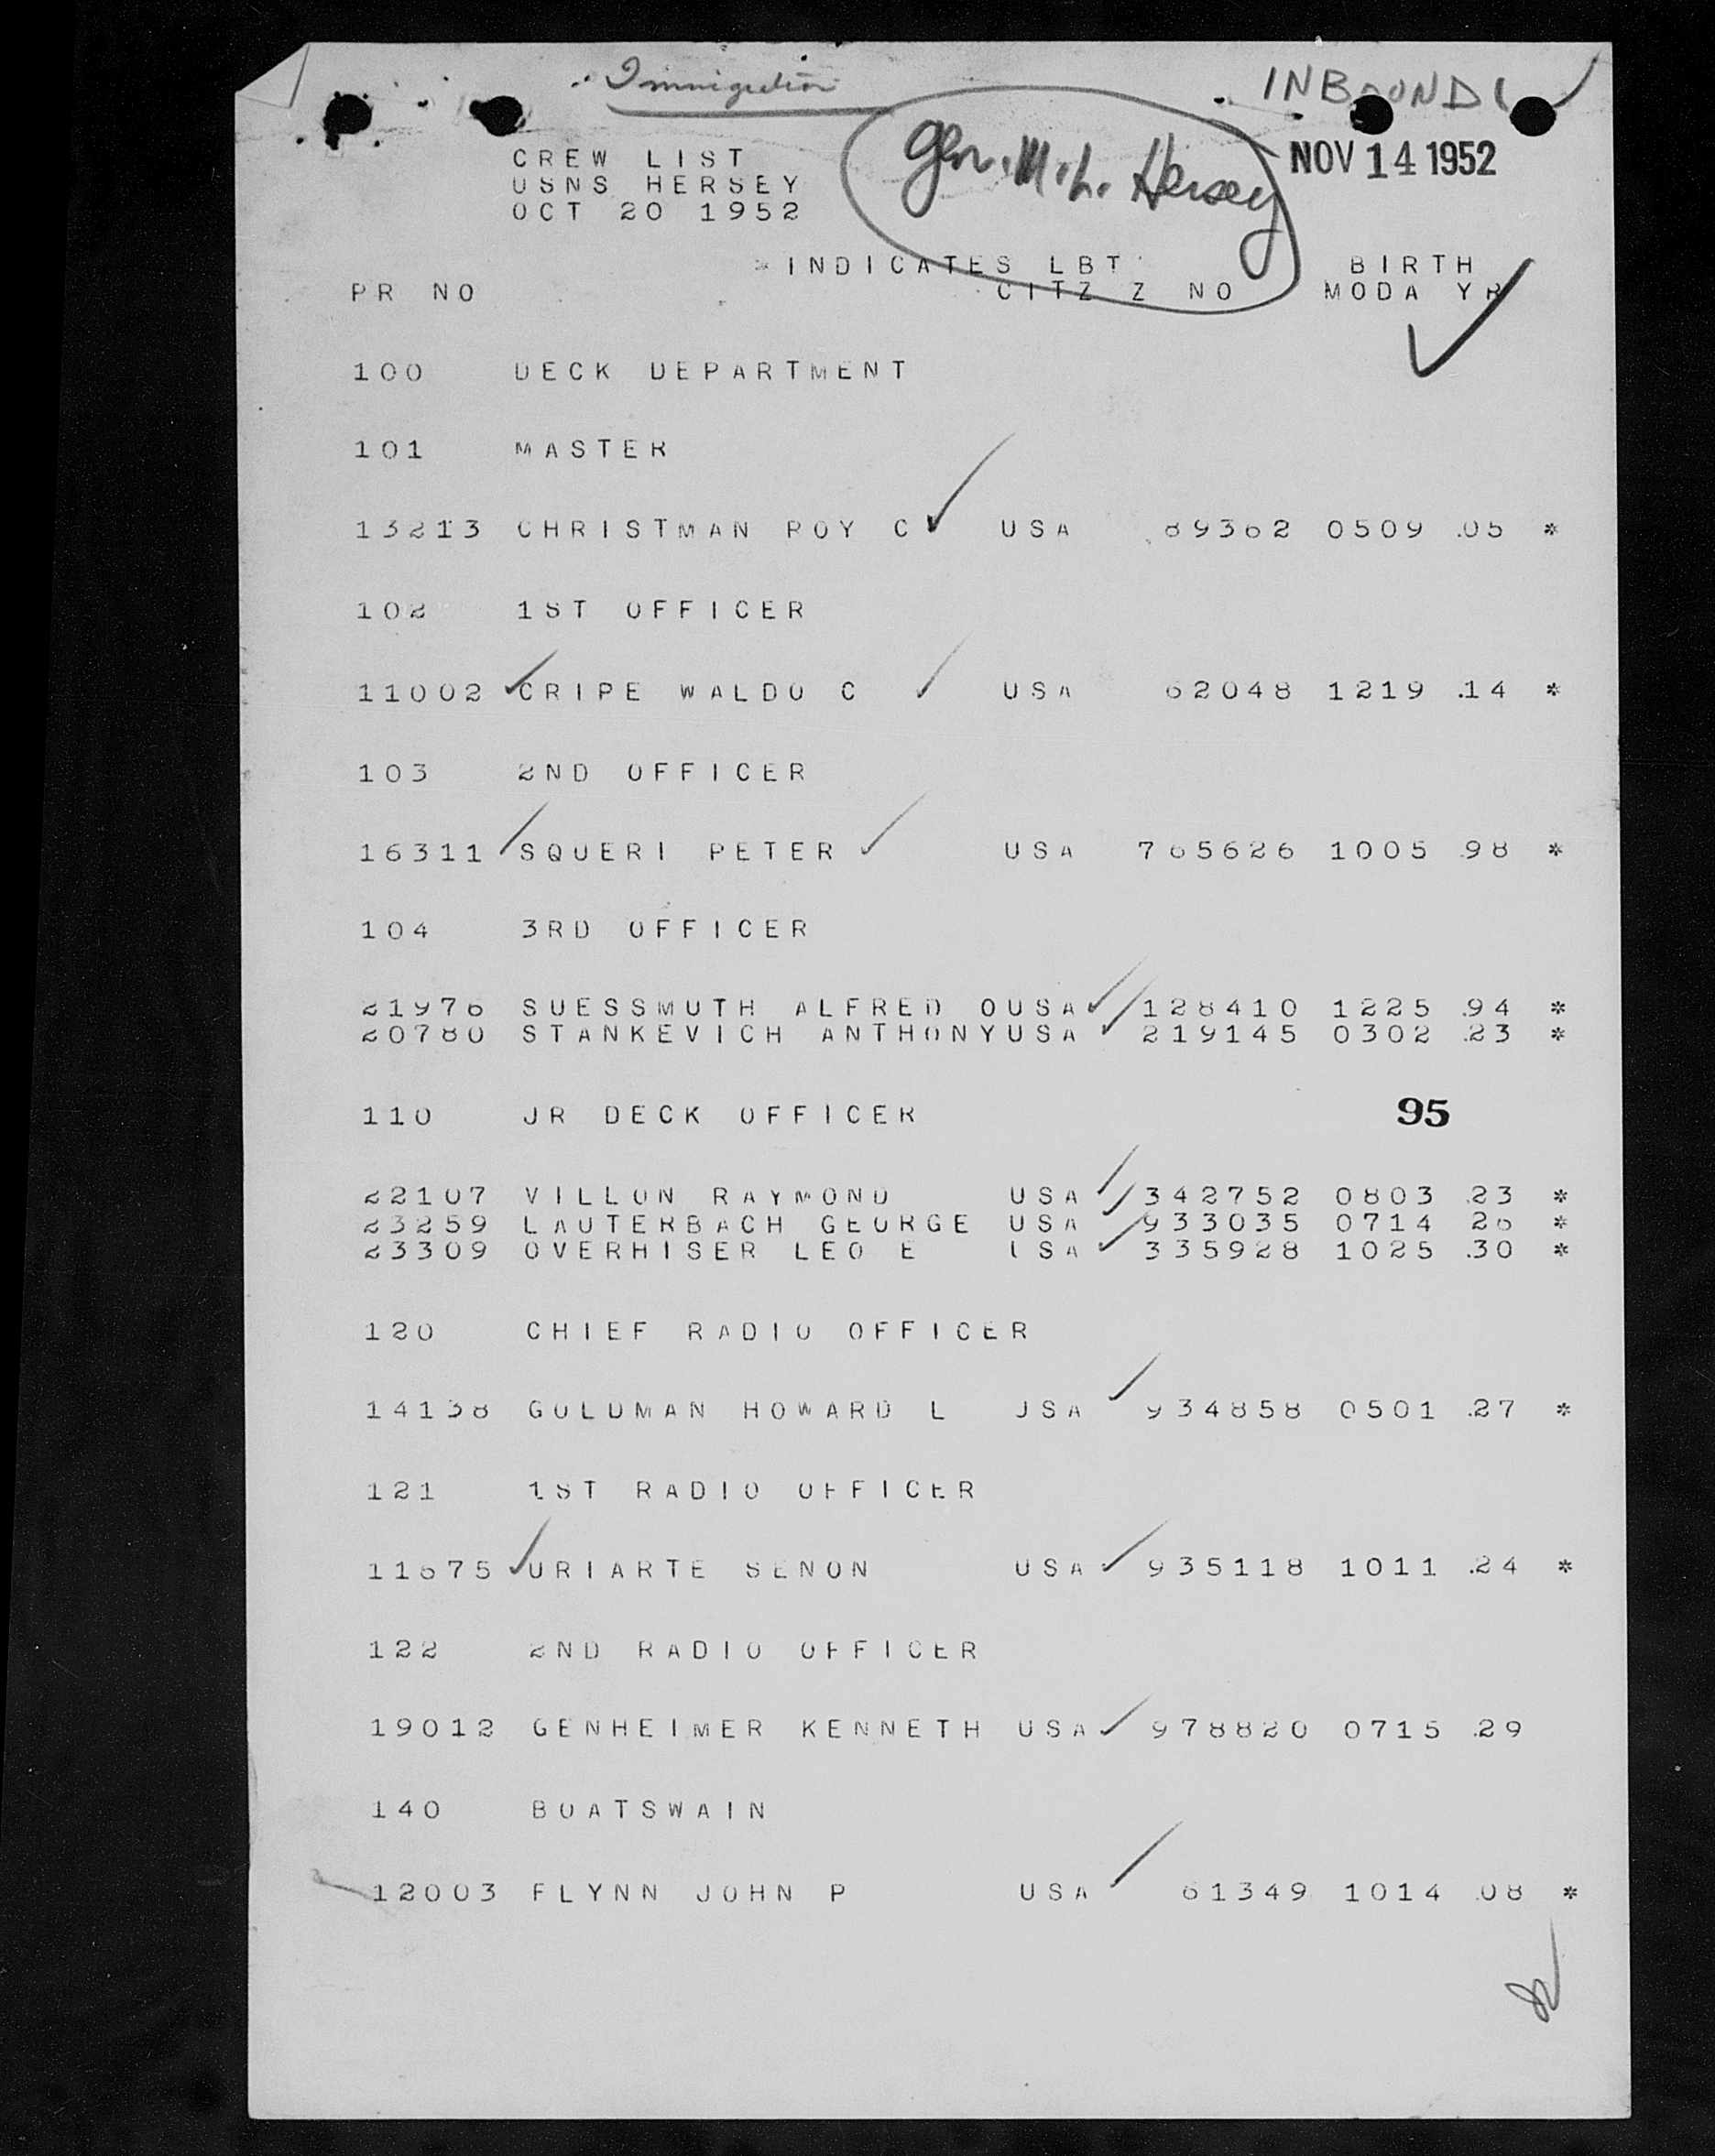 Immigration
INBOUND
Gen. M. L. Hersey
NOV 14 1952
CREW LIST
USNS HERSEY
OCT 20 1952
* INDICATES LBT BIRTH
PR NO CITZ Z NO MODA YR
100 DECK DEPARTMENT
101 MASTER
13213 CHRISTMAN ROY C USA 89362 0509 05 *
102 1ST OFFICER
11002 CRIPE WALDO C USA 62048 1219 14 *
103 2ND OFFICER
16311 SQUERI PETER USA 765626 1005 98 *
104 3RD OFFICER
21976 SUESSMUTH ALFRED OUSA 128410 1225 94 *
20780 STANKEVICH ANTHONYUSA 219145 0302 23 *
110 JR DECK OFFICER 95
22107 VILLON RAYMOND USA 342752 0803 23 *
23259 LAUTERBACH GEORGE USA 933035 0714 26 *
23309 OVERHISER LEO E USA 335928 1025 30 *
120 CHIEF RADIO OFFICER
14138 GOLDMAN HOWARD L USA 934858 0501 27 *
121 1ST RADIO OFFICER
11675 URIARTE SENON USA 935118 1011 24 *
122 2ND RADIO OFFICER
19012 GENHEIMER KENNETH USA 978820 0715 29
140 BOATSWAIN
12003 FLYNN JOHN P USA 61349 1014 08 *